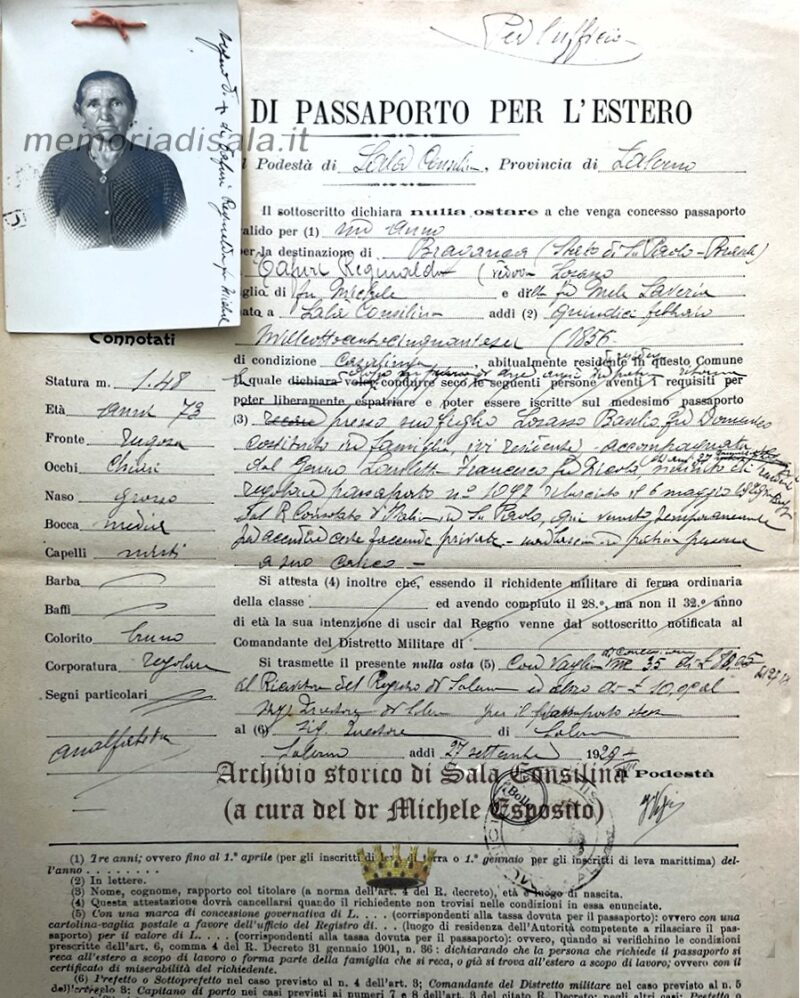 Per l'ufficio
memoriadisala.it
DI PASSAPORTO PER L'ESTERO
Podestà di Sala Consilina, Provincia di Salerno
Il sottoscritto dichiara nulla ostare a che venga concesso passaporto
valido per (1) un anno
per la destinazione di Bragança (Stato di S. Paolo - Brasile)
Cafuri Reginalda (vedova Losasso
figlio di fu Michele e di fu Mele Saveria
nato a Sala Consilina addì (2) quindici febbraio
Millottocentocinquantasei (1856
di condizione Casalinga, abitualmente residente in questo Comune
Il quale dichiara voler condurre seco le seguenti persone aventi i requisiti per
poter liberamente espatriare e poter essere iscritte sul medesimo passaporto
(3) presso suo figlio Losasso Basilio fu Domenico
costituito in famiglia, ivi residente, accompagnata
dal genero Francesco fu Nicola, munito di
regolare passaporto n° 1097 rilasciato il 6 maggio
dal R Consolato d'Italia in S. Paolo, qui venuto temporaneamente
per accudire certe faccende private - non lascia in patria persone
a suo carico -
Connotati
Statura m. 1.48
Età anni 73
Fronte rugosa
Occhi chiari
Naso grosso
Bocca media
Capelli misti
Barba
Baffi
Colorito bruno
Corporatura regolare
Segni particolari
analfabeta
Si attesta (4) inoltre che, essendo il richidente militare di ferma ordinaria
della classe ed avendo compiuto il 28.º, ma non il 32.º anno
di età la sua intenzione di uscir dal Regno venne dal sottoscritto notificata al
Comandante del Distretto Militare di
Si trasmette il presente nulla osta (5) con Vaglia 35 di £
al Ricevitore del Registro di Salerno ed altro di £ 10,00 al
Sig. Questore di Salerno per il passaporto stesso
al (6) Sig. Questore di Salerno
Salerno addì 27 settembre 1929
Il Podestà
Archivio storico di Sala Consilina
(a cura del dr Michele Esposito)
Bollo
(1) Tre anni; ovvero fino al 1.º aprile (per gli inscritti di leva di terra o 1.º gennaio per gli inscritti di leva marittima) del-
l'anno . . . . . . . . .
(2) In lettere.
(3) Nome, cognome, rapporto col titolare (a norma dell'art. 4 del R. decreto), età e luogo di nascita.
(4) Questa attestazione dovrà cancellarsi quando il richiedente non trovisi nelle condizioni in essa enunciate.
(5) Con una marca di concessione governativa di L. . . . (corrispondenti alla tassa dovuta per il passaporto): ovvero con una
cartolina-vaglia postale a favore dell'ufficio del Registro di. . . (luogo di residenza dell'Autorità competente a rilasciare il pas-
saporto) per il valore di L. . . (corrispondenti alla tassa dovuta per il passaporto); ovvero, quando si verifichino le condizioni
prescritte dell'art. 6, comma 4 del R. Decreto 31 gennaio 1901, n. 36 : dichiarando che la persona che richiede il passaporto si
reca all'estero a scopo di lavoro o forma parte della famiglia che si reca, o già si trova all'estero a scopo di lavoro; ovvero con il
certificato di miserabilità del richiedente.
(6) Prefetto o Sottoprefetto nel caso previsto al n. 4 dell'art. 3; Comandante del Distretto Militare nel caso previsto al n. 5
dell'articolo 3; Capitano di porto nei casi previsti ai numeri 7 e 8 dell'art. 3